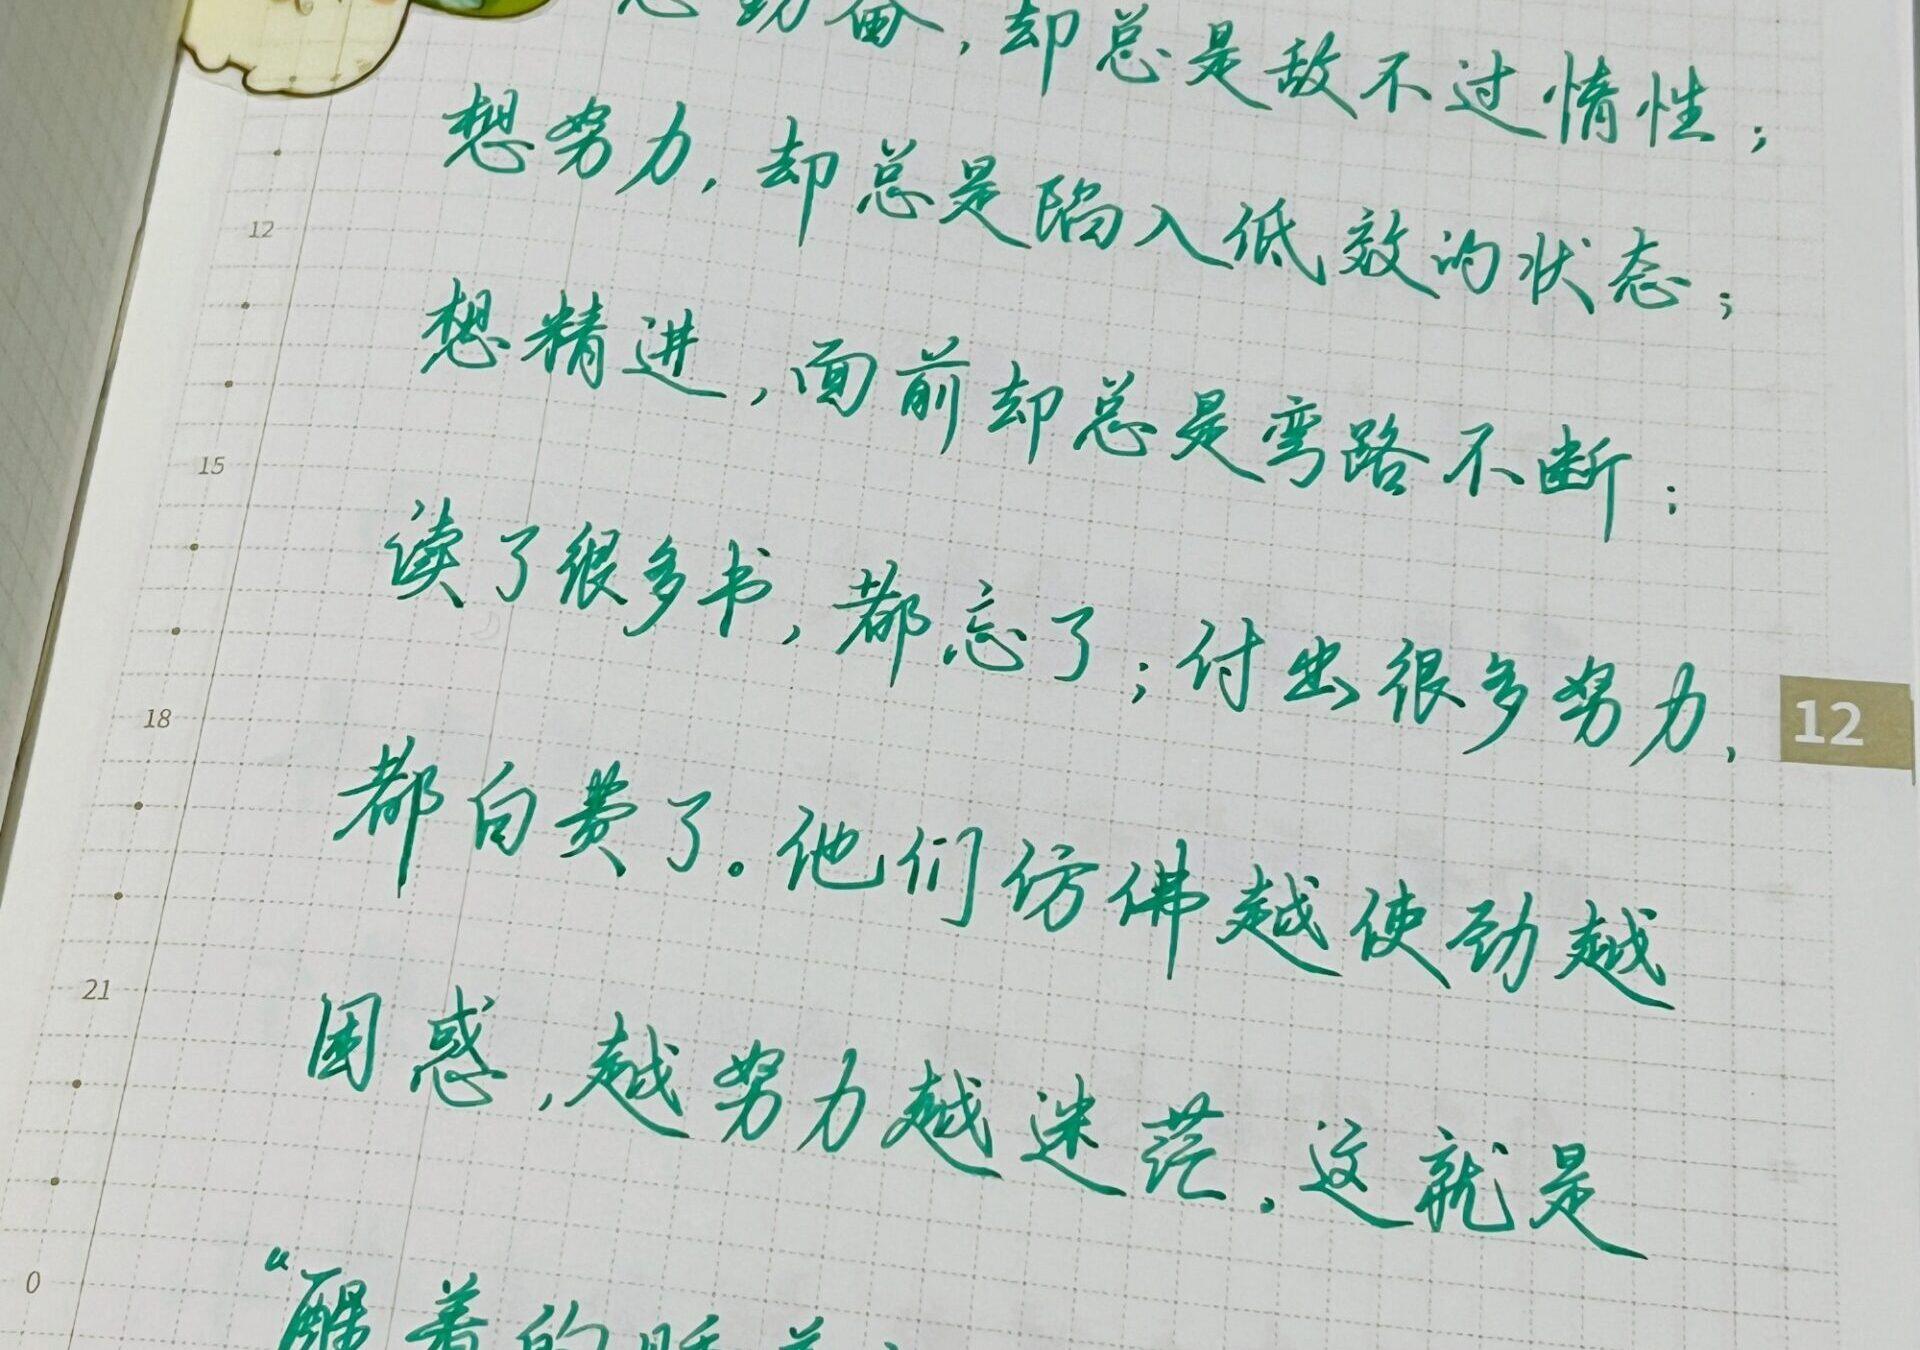 想勤奋，却总是敌不过惰性；
想努力，却总是陷入低效的状态；
12
想精进，面前却总是弯路不断；
15
读了很多书，都忘了；付出很多努力，
12
18
都白费了。他们仿佛越使劲越
21
困惑，越努力越迷茫。这就是
0
"醒着的